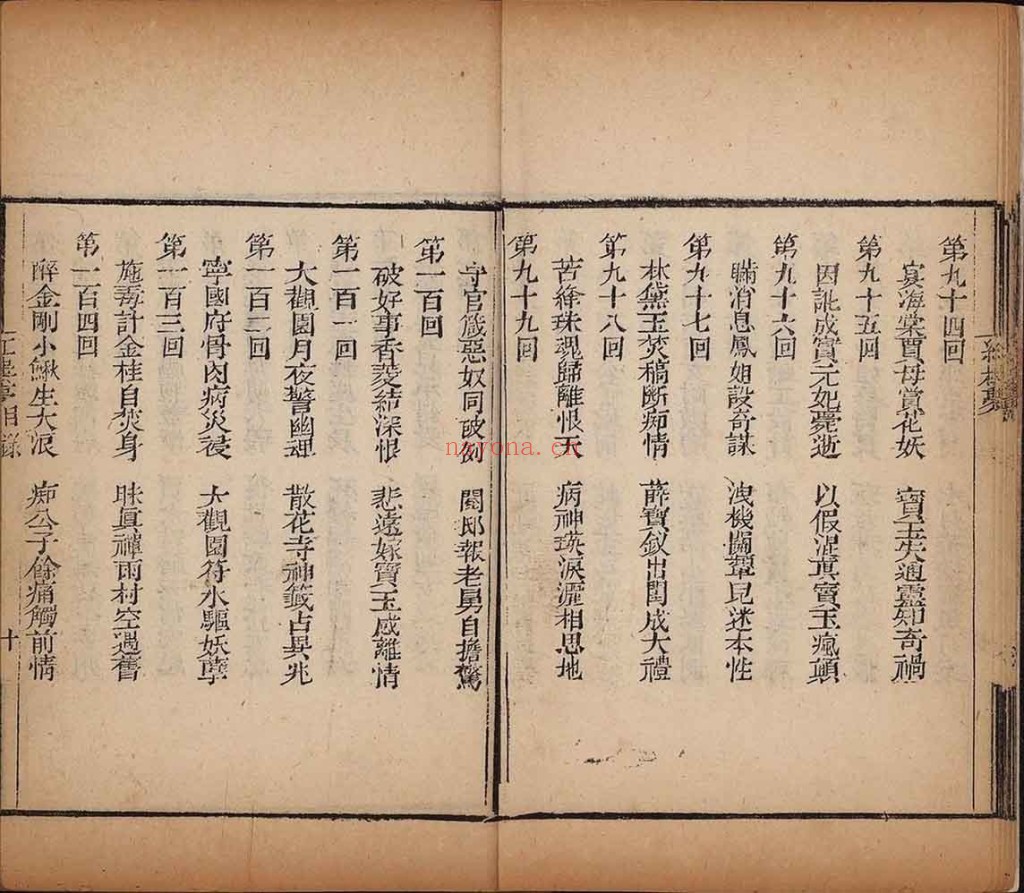 第九十四回
宴海棠賈母賞花妖　寶玉失通靈知奇禍
第九十五回
因訛成實元妃薨逝　以假混真寶玉瘋顛
第九十六回
瞞消息鳳姐設奇謀　洩機關顰兒迷本性
第九十七回
林黛玉焚稿斷痴情　薛寶釵出閨成大禮
第九十八回
苦絳珠魂歸離恨天　病神瑛淚灑相思地
第九十九回
守官箴惡奴同破例　閱邸報老舅自擔驚
第一百回
破好事香菱結深恨　悲遠嫁寶玉感離情
第一百一回
大觀園月夜警幽魂　散花寺神籤占異兆
第一百二回
寧國府骨肉病災祲　大觀園符水驅妖孽
第一百三回
施毒計金桂自焚身　昧真禪雨村空遇舊
第一百四回
醉金剛小鰍生大浪　痴公子餘痛觸前情
紅樓夢目錄
十
nayona.cn